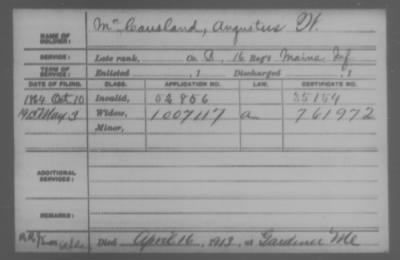 NAME OF SOLDIER: Mc Causland, Angustus W.
SERVICE: Late rank, Co. B, 16 Reg't Maine Inf
TERM OF SERVICE: Enlisted , 1 Discharged , 1
DATE OF FILING. CLASS. APPLICATION NO. LAW. CERTIFICATE NO.
1864 Oct 10 Invalid, 52856 35154
May 3 Widow, 1007117 a 761972
Minor,
ADDITIONAL SERVICES:
REMARKS:
Died April 16, 1913, at Gardiner Me